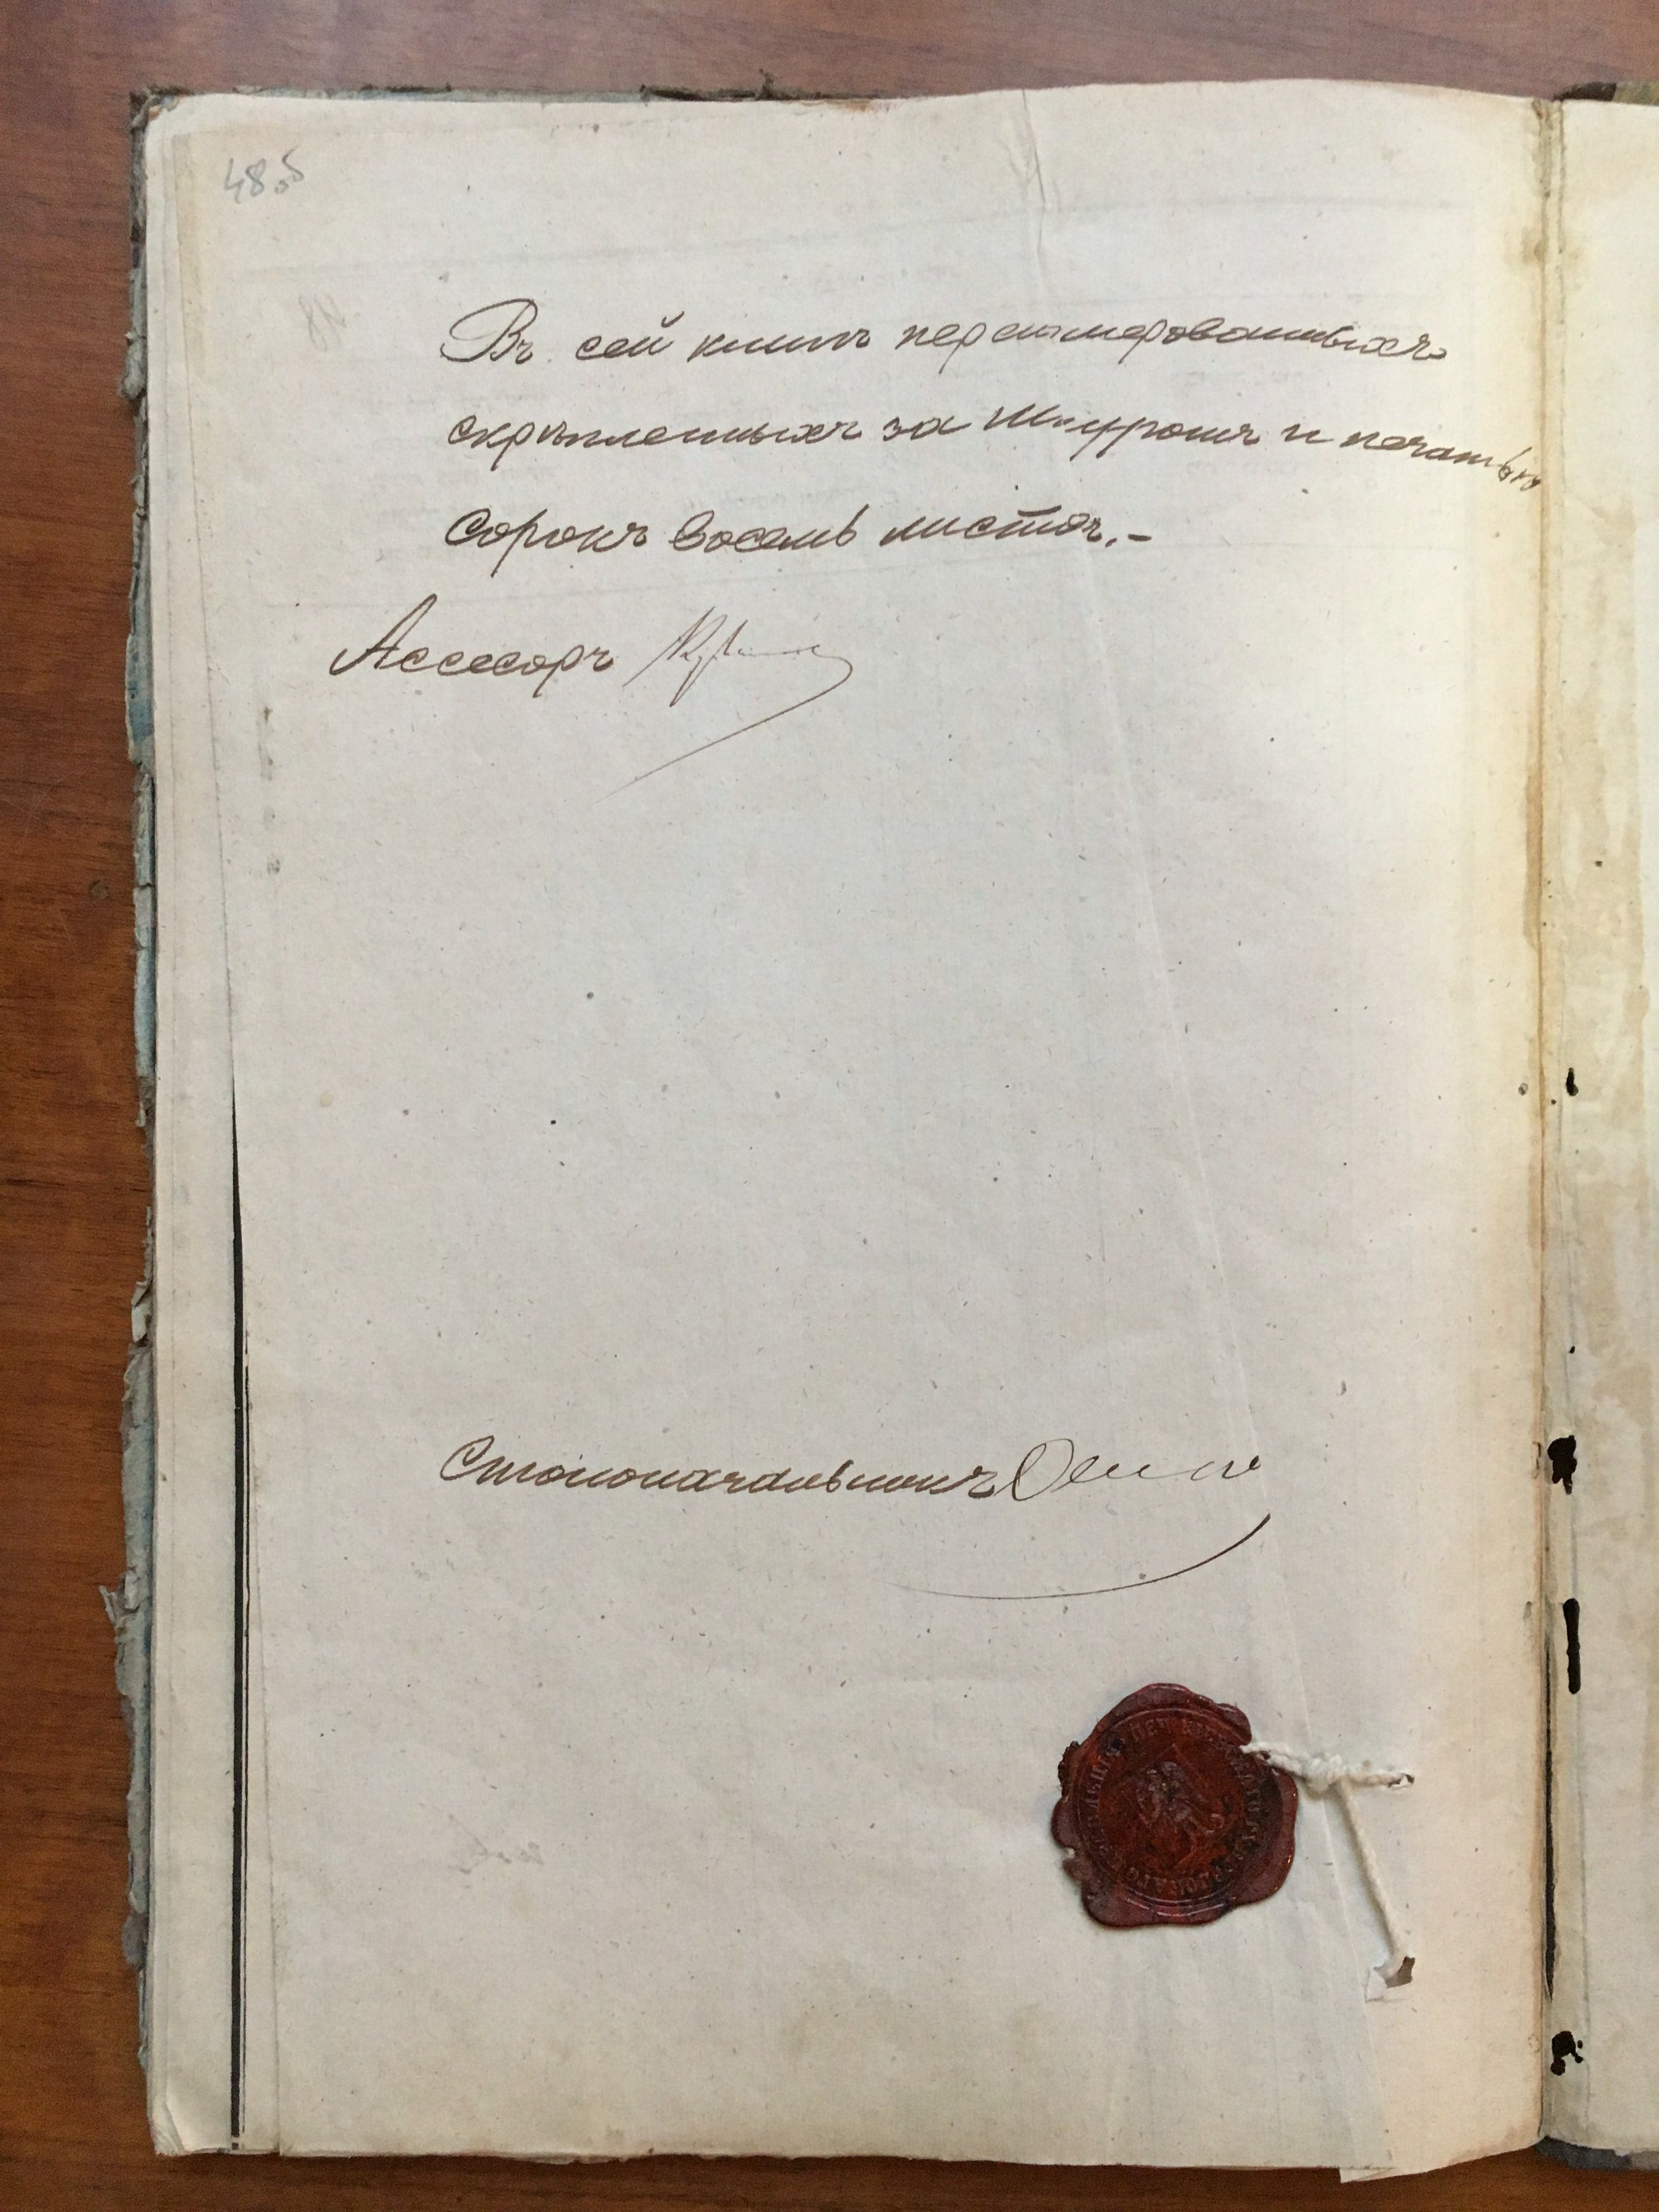 48об
Въ сей книгѣ перенумерованныхъ
скрѣпленныхъ за шнуромъ и печатью
сорокъ восемь листовъ.-
Ассесоръ
Столоначальникъ